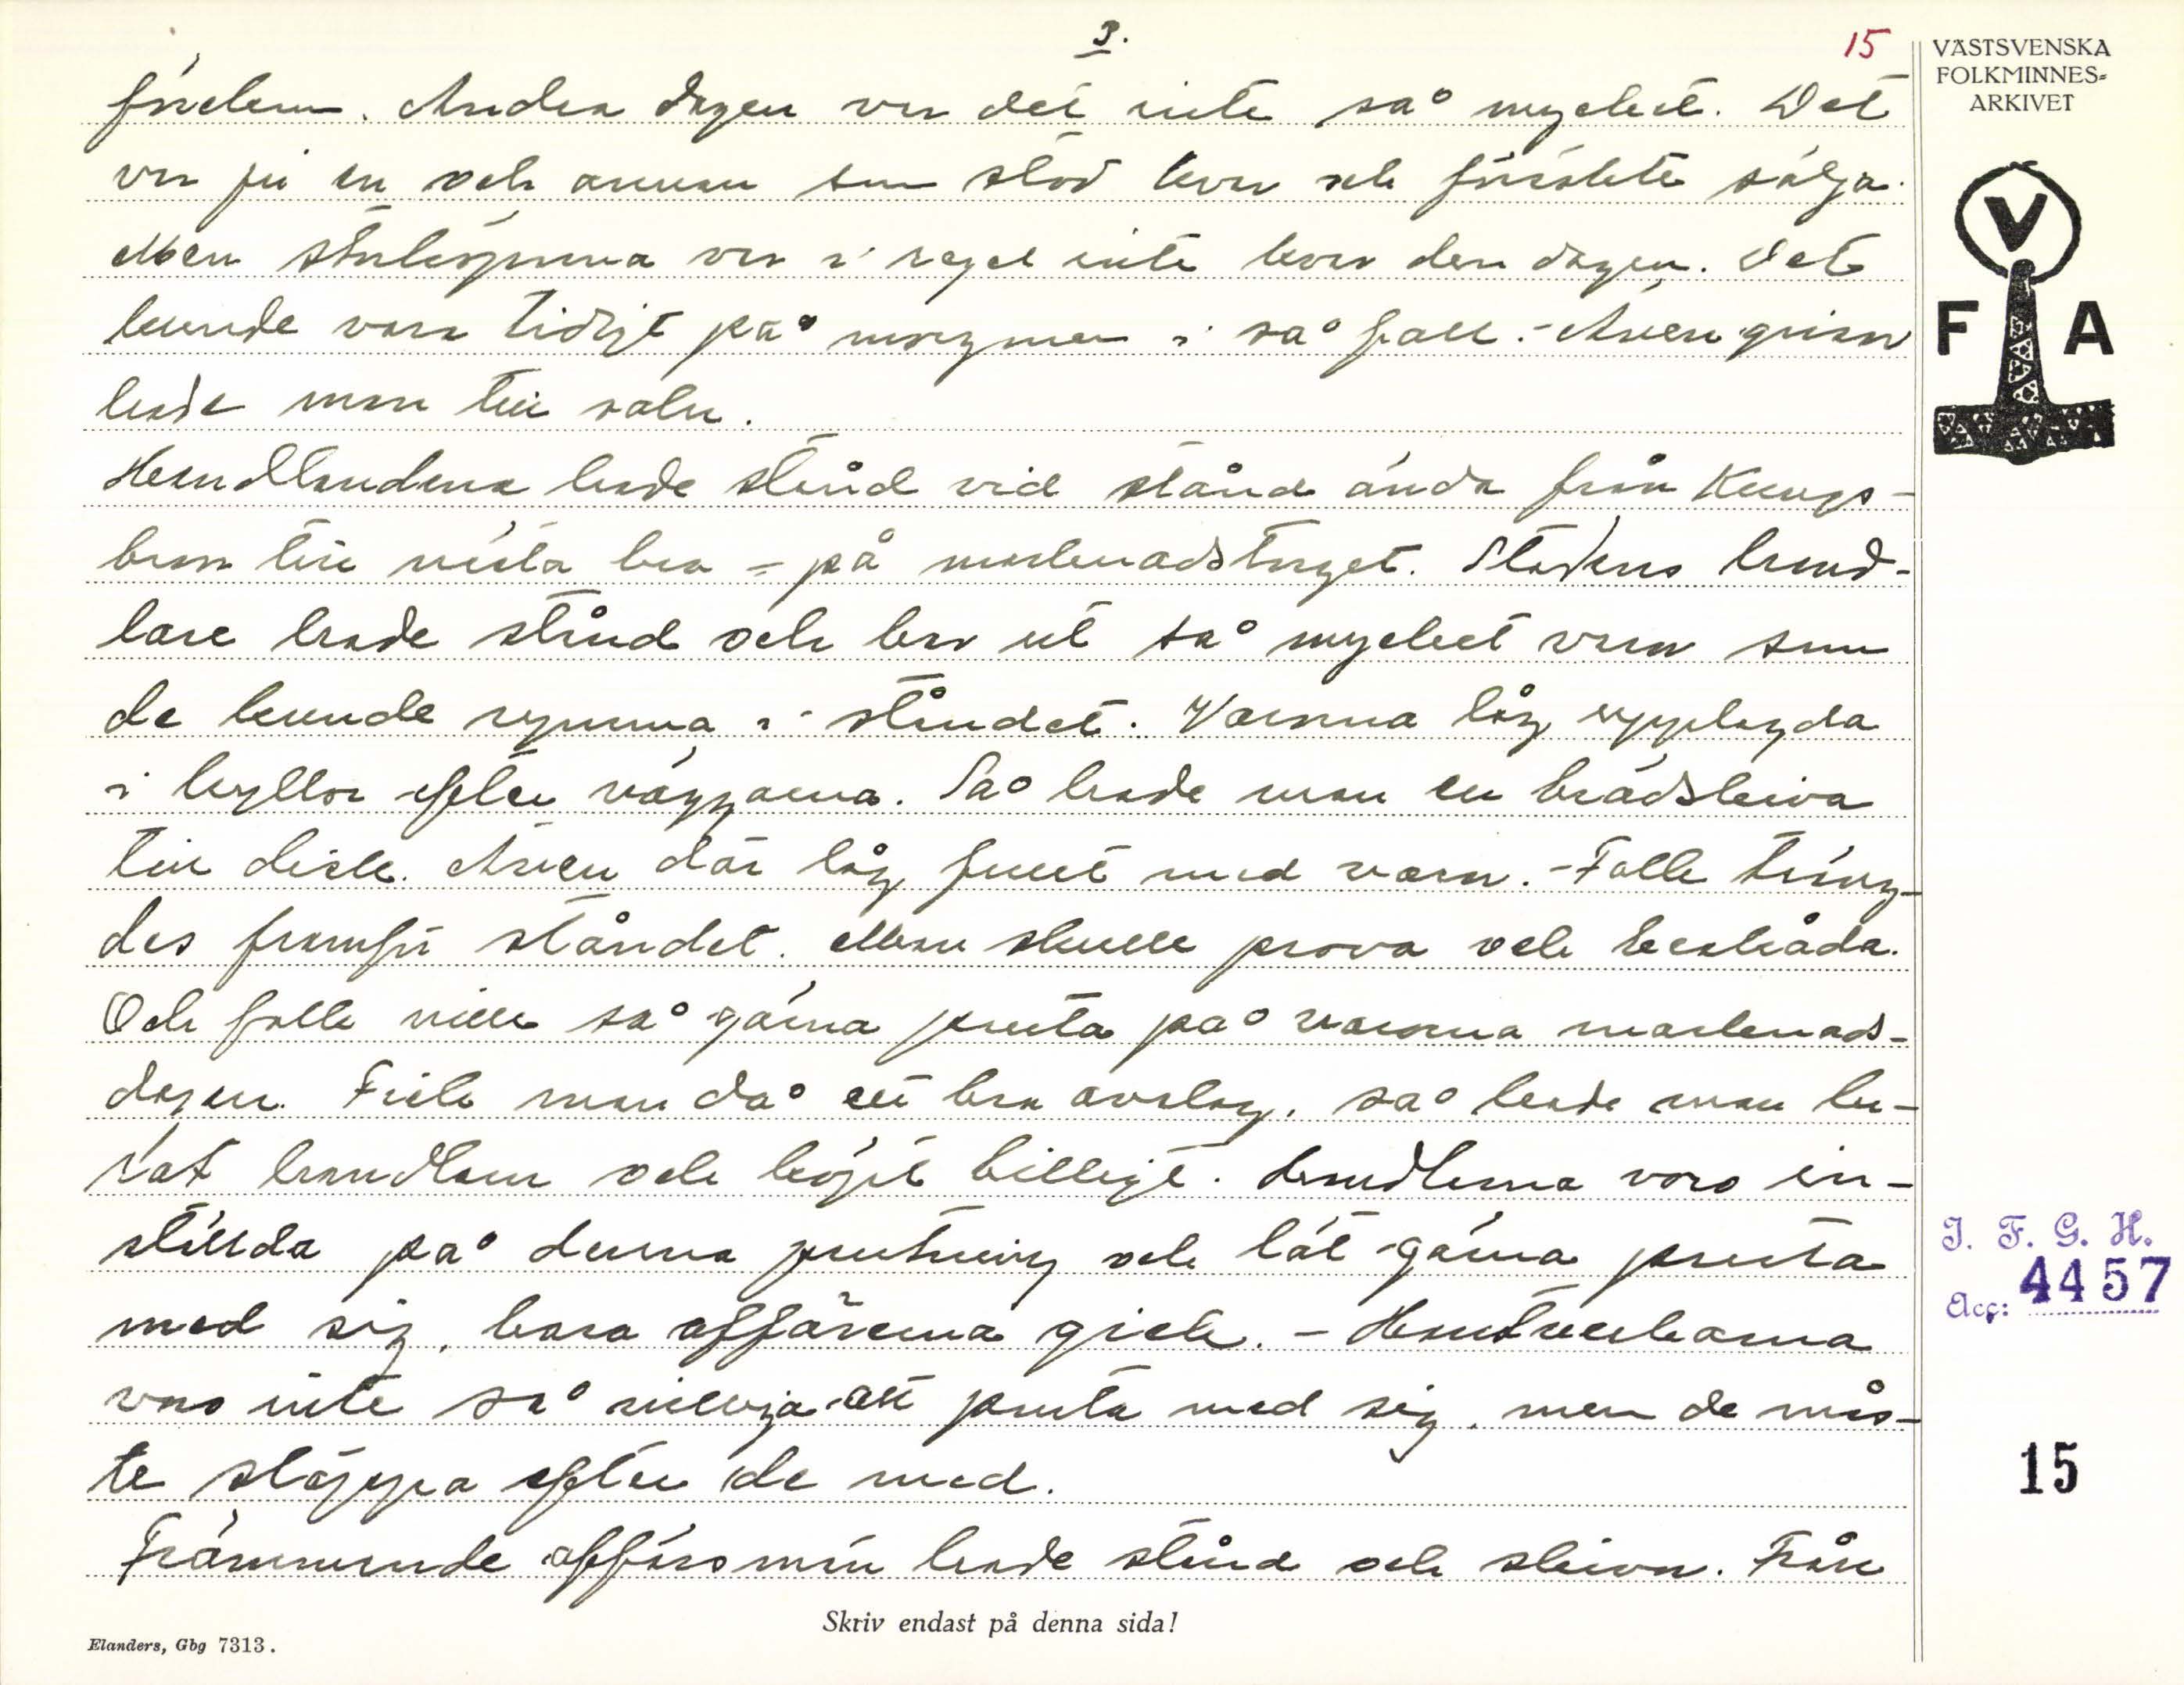 3.
15
VÄSTSVENSKA
FOLKMINNES=
ARKIVET
V
F A
fördem. Andra dagen var det inte så mycket. Det
var ju en och annan som stod kvar och försökte sälja.
Men storköparna var i regel inte kvar den dagen. Det
kunde vara tidigt på morgonen i så fall. - Även grisar
hade man till salu.
Handlandena hade stånd vid stånd ända från Kungs-
bron till nästa bro - på marknadstorget. Stadens hand-
lare hade stånd och bar ut så mycket varor som
de kunde rymma i ståndet. Varorna låg upplagda
i hyllor efter väggarna. Så hade man en brädskiva
till disk. Även där låg fullt med varor. - Folk träng-
des framför ståndet. Man skulle prova och beskåda.
Och folk ville så gärna pruta på varorna marknads-
dagen. Fick man då ett bra avslag, så hade man lu-
rat handlarn och köpt billigt. Handlarna voro in-
ställda på denna prutning och lät gärna pruta
med sig, bara affärerna gick. - Hantverkarna
voro inte så villiga att pruta med sig, men de mås-
te släppa efter de med.
Främmande affärsmän hade stånd och skivor. Från
Skriv endast på denna sida!
Elanders, Gbg 7313.
I. F. G. H.
Acc: 4457
15